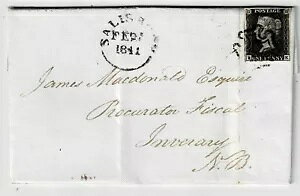 SALISBURY
FE
1841
POSTAGE
ONE PENNY
James Macdonald Esquire
Procurator Fiscal
Inverary
N.B.